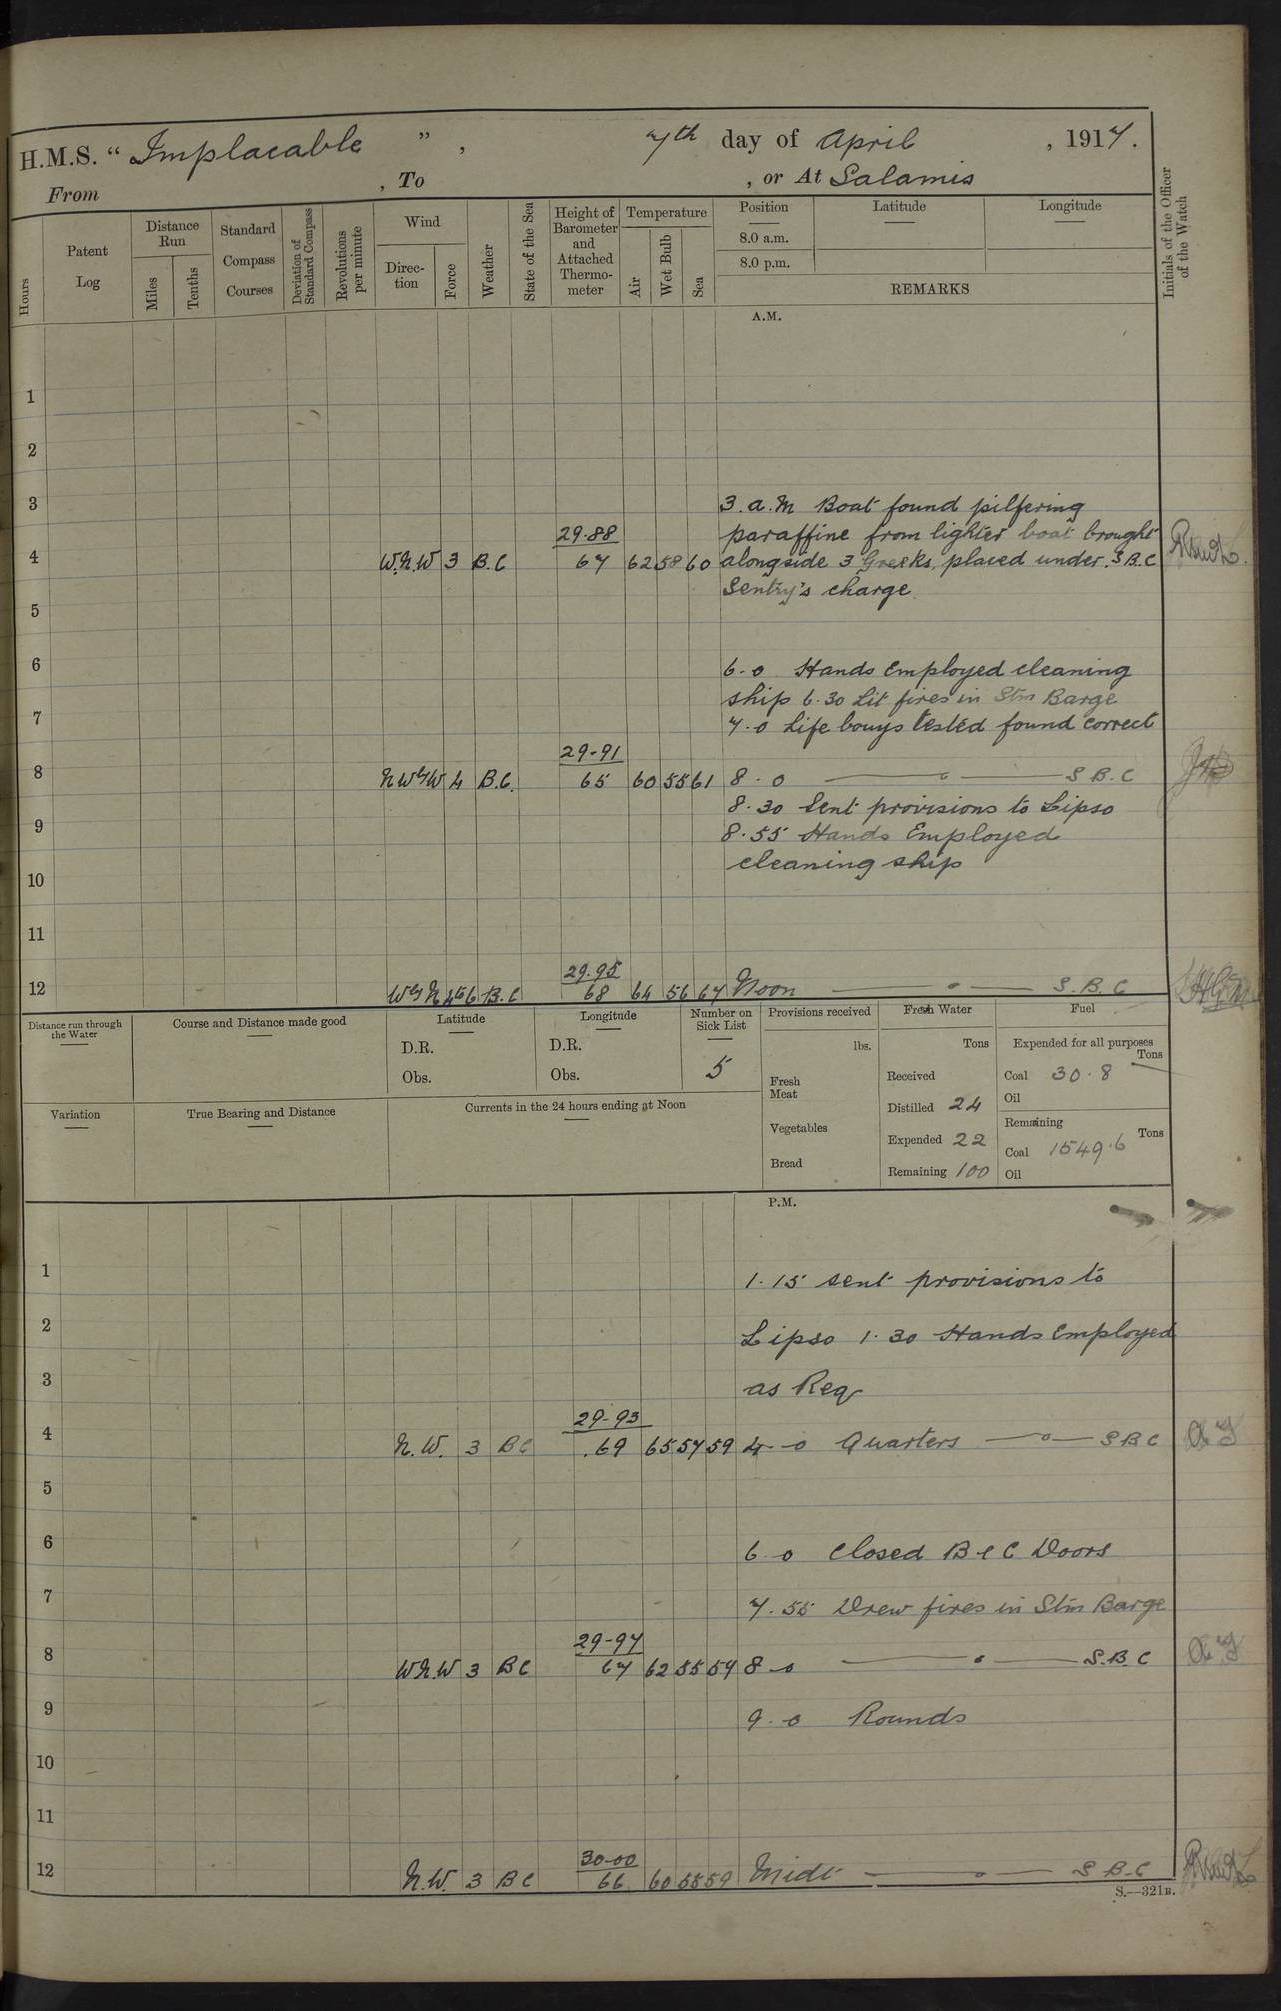 H.M.S. “ Implacable ” , 7th day of April , 1917.
From , To , or At Salamis
Hours
Patent Log
Distance Run
Miles
Tenths
Standard Compass Courses
Deviation of Standard Compass
Revolutions per minute
Wind
Direc- tion
Force
Weather
State of the Sea
Height of Barometer and Attached Thermo- meter
Temperature
Air
Wet Bulb
Sea
Position
8.0 a.m.
8.0 p.m.
Latitude
Longitude
REMARKS
Initials of the Officer of the Watch
A.M.
1
2
3 3.a.m Boat found pilfering
29.88 paraffine from lighter boat brought
4 W.N.W 3 B.C 67 62 58 60 alongside 3 Greeks, placed under. S B.C
Sentry's charge.
5
6 6.0 Hands Employed cleaning
ship 6.30 Lit fires in Stm Barge
7 7.0 Life bouys tested found correct
29-91
8 N W by W 4 B.C. 65 60 55 61 8.0 S B.C
8.30 Sent provisions to Lipso
9 8.55 Hands Employed
cleaning ship
10
11
29.95
12 W by N 4 to 6 B.C 68 64 56 67 Noon S.B.C
Distance run through the Water
Course and Distance made good
Latitude
D.R.
Obs.
Longitude
D.R.
Obs.
Number on Sick List
5
Provisions received
lbs.
Fresh Meat
Vegetables
Bread
Fresh Water
Tons
Received
Distilled 24
Expended 22
Remaining 100
Fuel
Expended for all purposes
Tons
Coal 30.8
Oil
Remaining
Tons
Coal 1549.6
Oil
Variation
True Bearing and Distance
Currents in the 24 hours ending at Noon
P.M.
1 1.15 sent provisions to
2 Lipso 1.30 Hands Employed
3 as Req
29-93
4 N.W. 3 BC .69 65 57 59 4-0 Quarters S B C
5
6 6-0 Closed B & C Doors
7 7.55 Drew fires in Stm Barge
29-97
8 W N.W 3 BC 67 62 55 59 8-0 S.B.C
9 9.0 Rounds
10
11
30-00
12 N.W. 3 BC 66 60 55 59 Midt S B-C
S.—321B.